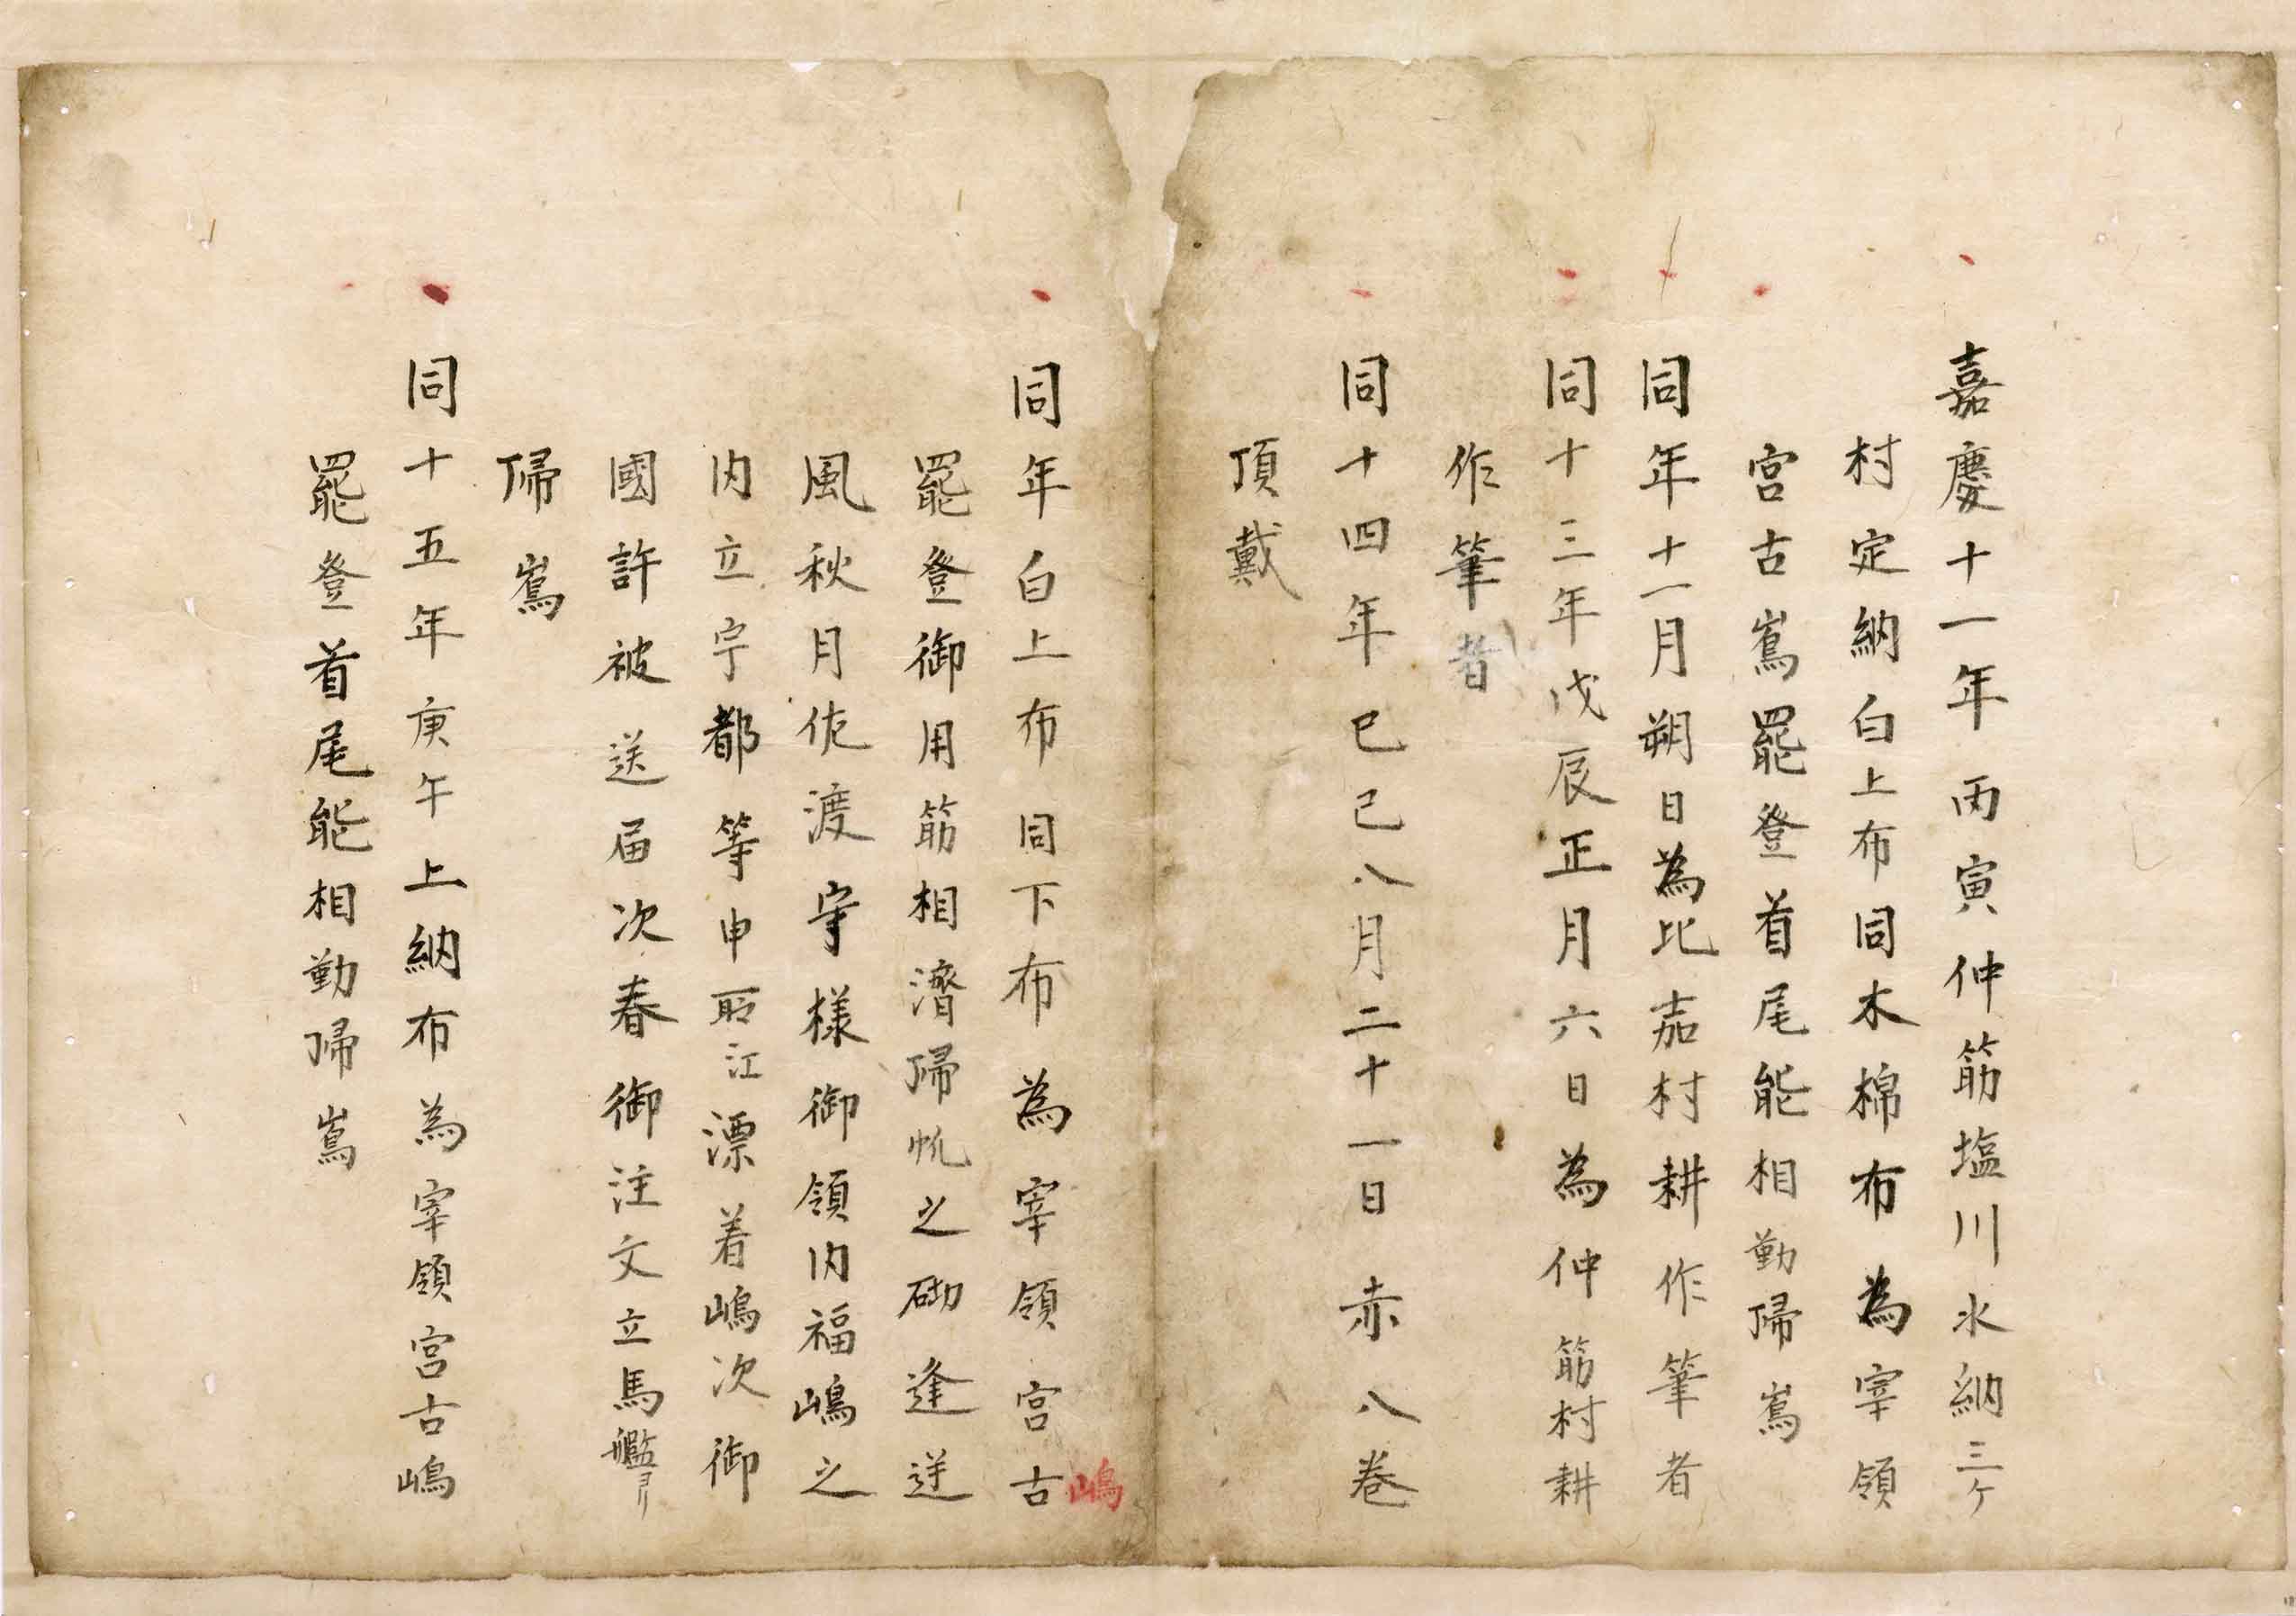 嘉慶十一年丙寅仲筋塩川水納三ケ
村定納白上布同木棉布為宰領
宮古嶌罷登首尾能相勤帰嶌
同年十一月朔日為比嘉村耕作筆者
同十三年戊辰正月六日為仲筋村耕
作筆者
同十四年巳己八月二十一日赤八巻
頂戴
同年白上布同下布為宰領宮古嶋
罷登御用筋相濟帰帆之砌逢逆
風秋月佐渡守様御領内福嶋之
内立宇都等申所江漂着嶋次御
國許被送届次春御注文立馬艦
帰嶌
同十五年庚午上納布為宰領宮古嶋
罷登首尾能相勤帰嶌